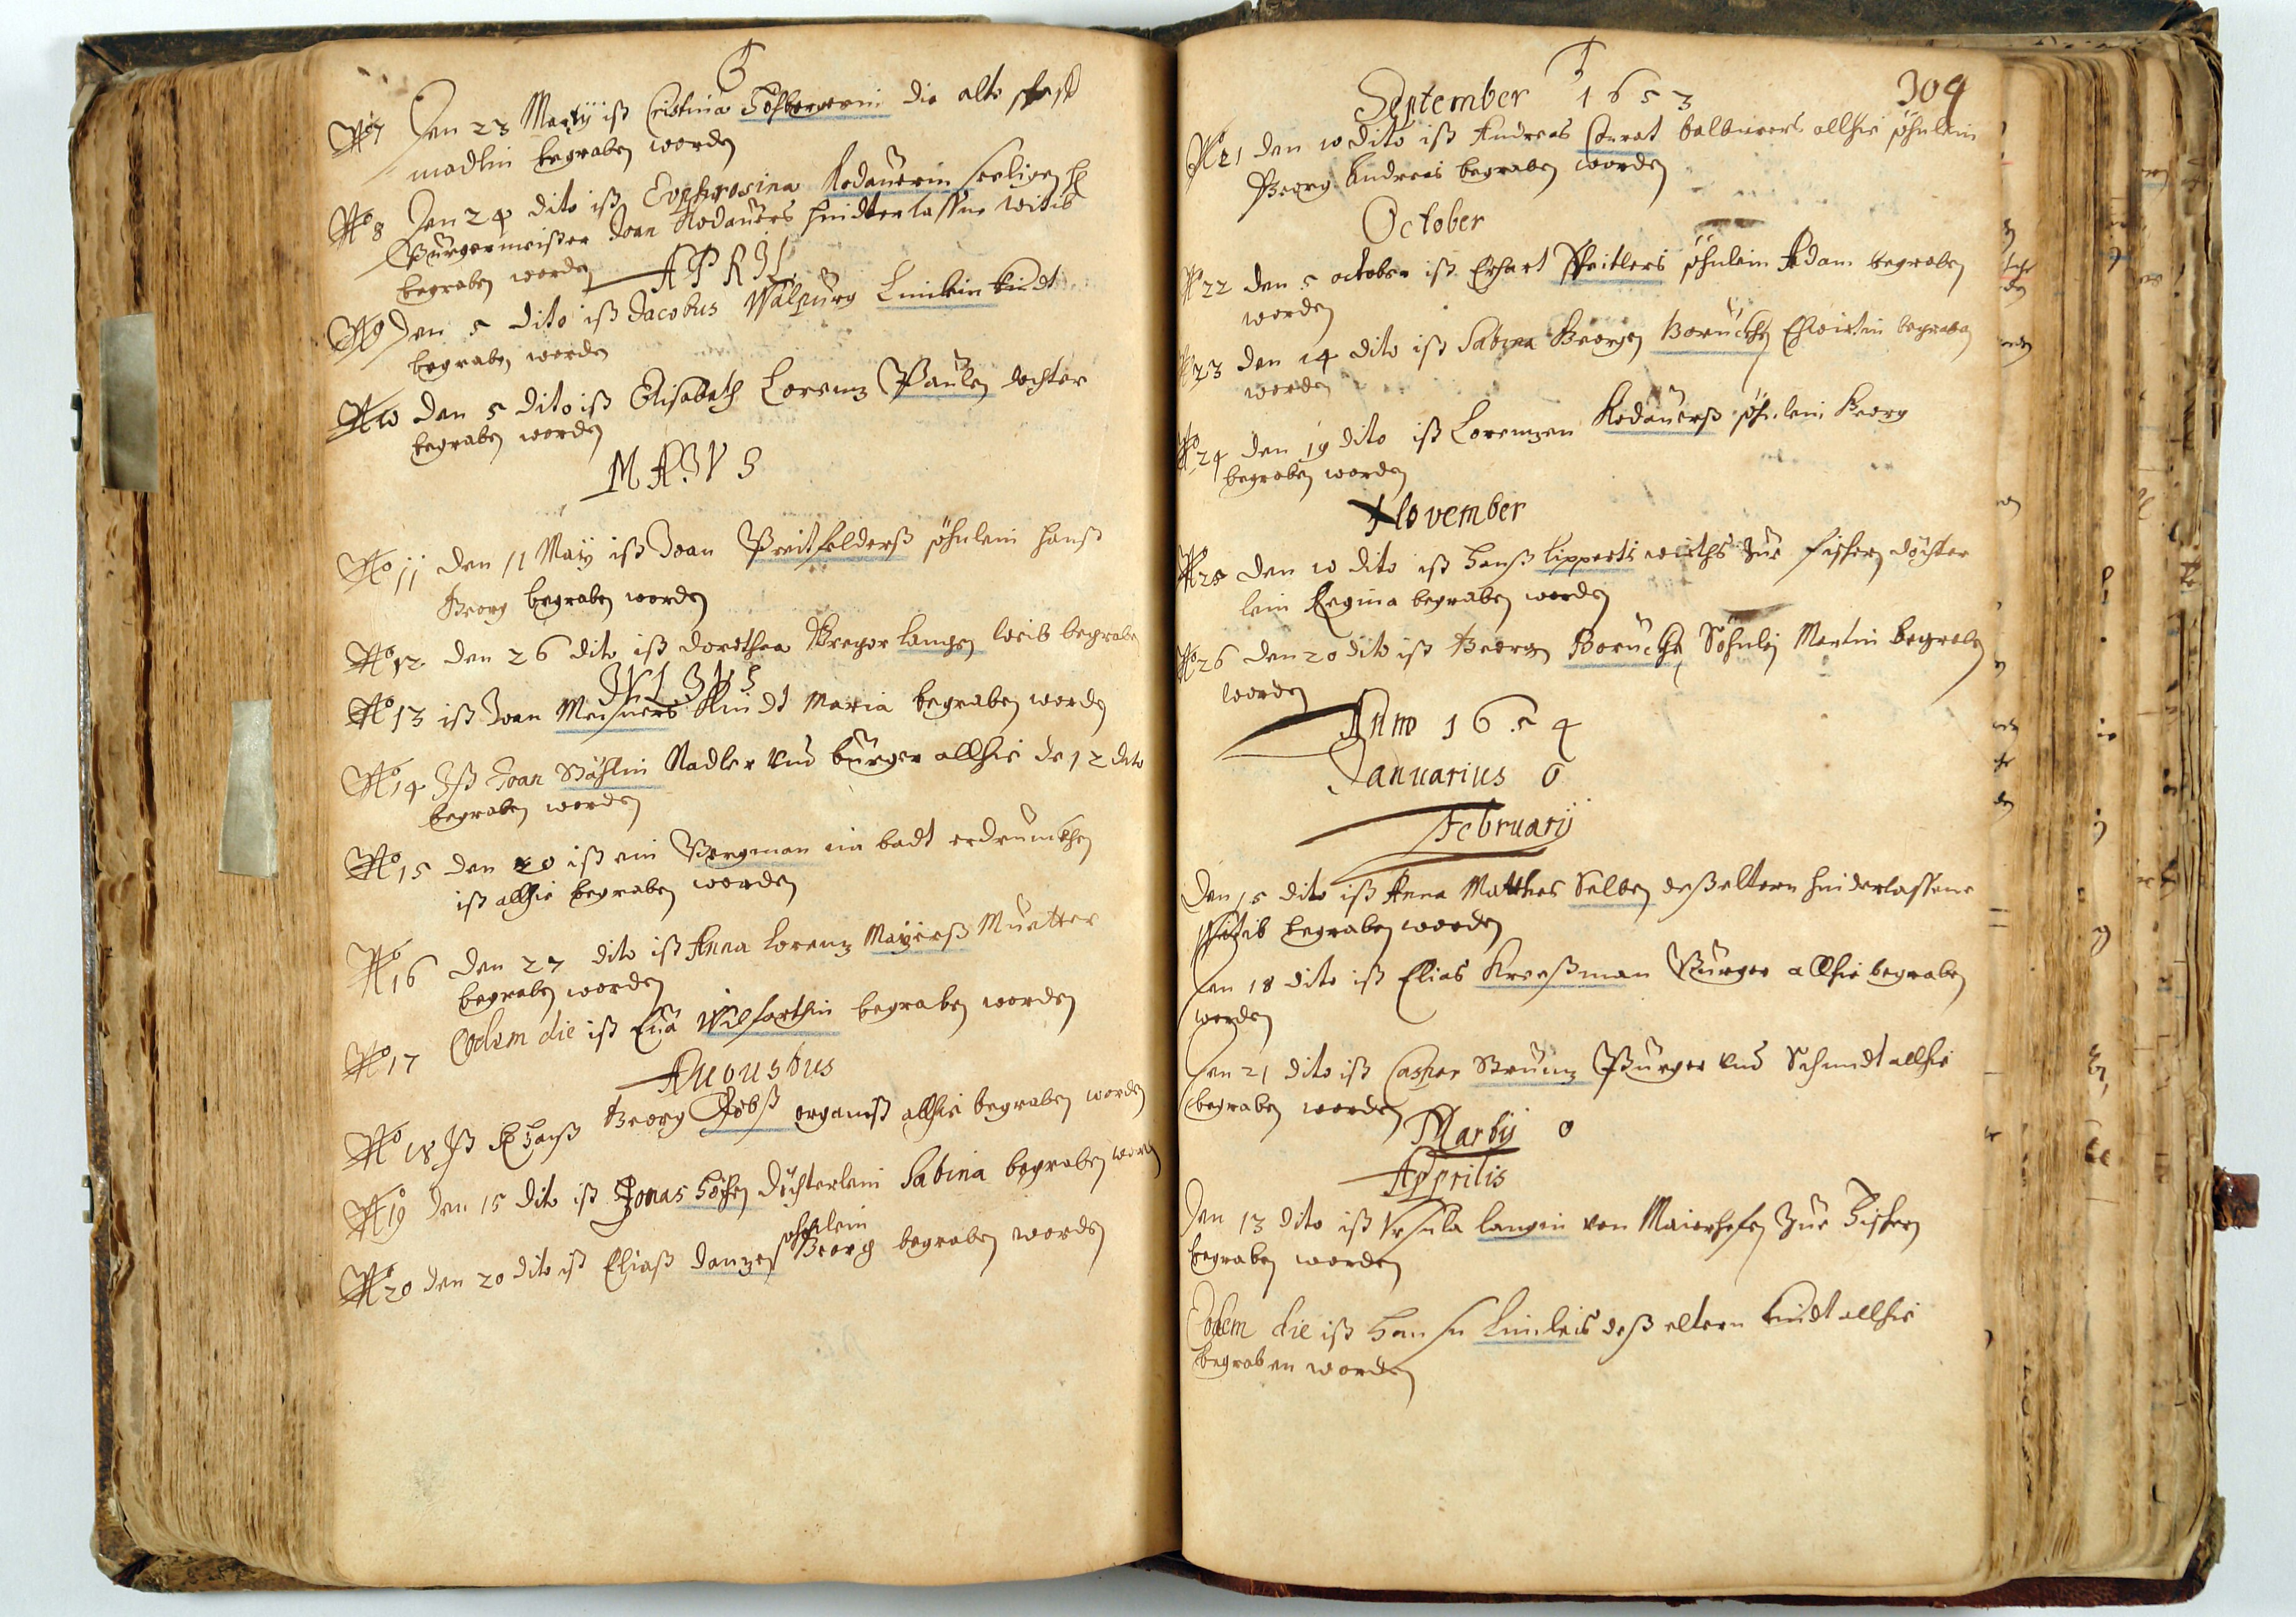 No 7 Den 23 Martij ist Cristina die alte
madlin begraben worden
No 8 Den 24 dito ist Euphrosina Rodauerin seeligen H
Burgermeister Joan Rodauers hindterlassne Witib
begraben worden
APRIL
No 9 Den 5 dito ist Jacobus Walpurg kindt
begraben worden
No 10 den 5 dito ist Elisabeth Lorenz Paulen dochter
begraben worden
MAIVS
No 11 den 11 Maij ist Joan Preitfelderß söhnlein Hanß
Georg begraben worden
No 12 den 26 dito ist Dorothea Gregor Langen Weib begraben
No 13 ist Joan Meisners Kindt Maria begraben worden
No 14 Ist Joan Stählin Nadler Vnd burger allhie de 12 dito
begraben worden
No 15 den 20 ist ein Bergman im badt erdrunckhen
ist allhie begraben worden
No 16 den 27 dito ist Anna Lorenz Mayerß Muetter
begraben worden
No 17 Eodem die ist Eua begraben worden
Augustus
No 18 Ist H Hanß Georg Jobst organist allhie begraben worden
No 19 den 15 dito ist Jonas döchterlein Sabina begraben worden
söhnlein
No 20 den 20 dito ist Eliaß Danzes Georg begraben worden
304
September 1653
No 21 den 10 dito ist Andreas Conrat balbierers allhie söhnlein
Georg Andreas begraben worden
October
No 22 den 5 october ist Erhart söhnlein Adam begraben
worden
No 23 den 14 dito ist Sabina Georgen Ehwirtin begraben
worden
No 24 den 19 dito ist Lorenzen Rodauerß söhnlein Georg
begraben worden
November
No 25 den 10 dito ist Hanß Lipperts wirths Zue döchter
lein Regina begraben worden
No 26 den 20 dito ist Georgen Söhnlein Martin begraben
worden
Anno 1654
Januarius 0
Februarij
Den 15 dito ist Anna Matthes Selben deß eltern hinderlassene
Witib begraben worden
Den 18 dito ist Elias Kreeßman Burger allhie begraben
worden
Den 21 dito ist Casper Strunz Burger Vnd Schmidt allhie
begraben worden
Martij 0
Apprilis
Den 13 dito ist Vrsula Langin von Maierhofen Zue
begraben worden
Eodem die ist Hansen deß eltern kindt allhie
begraben worden